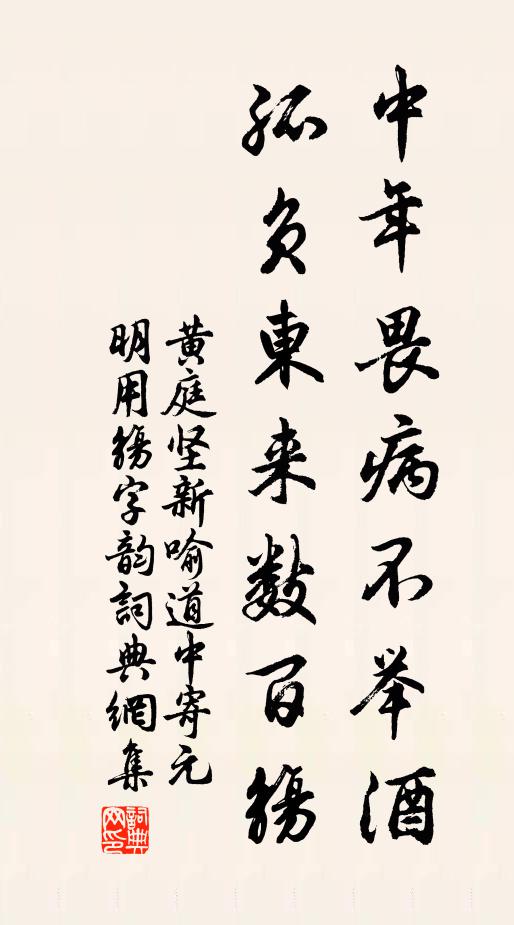 中年畏病不举酒
孤负東来数百觞
黄庭坚新喻道中寄元
明用觞字韵詞典網集
詞典网印